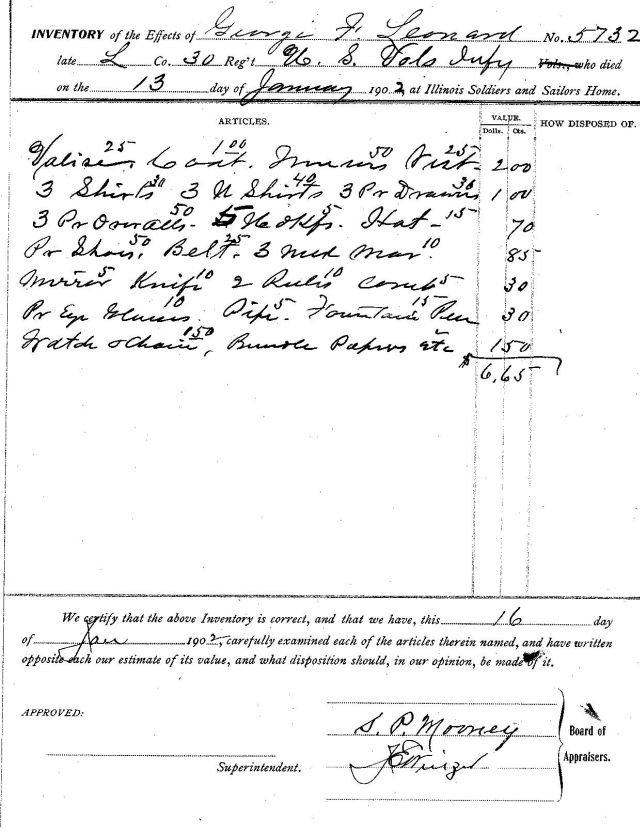 INVENTORY of the Effects of George F. Leonard No. 5732
late L Co. 30 Reg't U. S. Vols Infy Vols., who died
on the 13 day of January 1902, at Illinois Soldiers and Sailors Home.
ARTICLES. VALUE. HOW DISPOSED OF.
Dolls. Cts.
Valise 25 Coat 1 00 50 Vest 25 2 00
3 Shirts 30 3 U Shirts 40 3 Pr Drawers 30 1 00
3 Pr Overalls 50 5 Hdkfs. 5 Hat - 15 70
Pr Shoes. 50 Belt. 25 3 10 85
Mirror 5 Knife 10 2 Rules 10 Comb 5 30
Pr Eye Glasses 10 Pipe. 5 Fountain Pen 15 30
Watch & Chain 1 50, Bundle Papers etc 1 50
$ 6,65
We certify that the above Inventory is correct, and that we have, this 16 day
of Jan 1902, carefully examined each of the articles therein named, and have written
opposite each our estimate of its value, and what disposition should, in our opinion, be made of it.
APPROVED:
S. P. Mooney
Board of
Appraisers.
Superintendent.